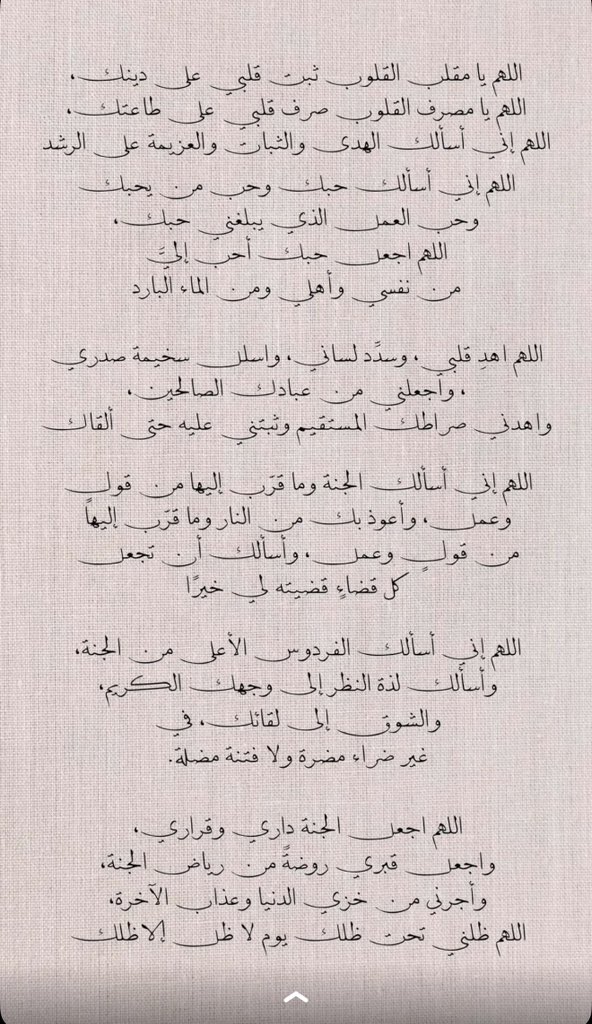 اللهم يا مقلب القلوب ثبت قلبي على دينك،
اللهم يا مصرف القلوب صرف قلبي على طاعتك،
اللهم إني أسألك الهدى والثبات والعزيمة على الرشد
اللهم إني أسألك حبك وحب من يحبك
وحب العمل الذي يبلغني حبك،
اللهم اجعل حبك أحب إليَّ
من نفسي وأهلي ومن الماء البارد
اللهم اهدِ قلبي، وسدِّد لساني، واسلل سخيمة صدري
، واجعلني من عبادك الصالحين،
واهدني صراطك المستقيم وثبتني عليه حتى ألقاك
اللهم إني أسألك الجنة وما قرَب إليها من قول
وعمل، وأعوذ بك من النار وما قرَب إليهاً
من قولٍ وعمل، وأسألك أن تجعل
كل قضاءٍ قضيته لي خيرًا
اللهم إني أسألك الفردوس الأعلى من الجنة،
وأسألك لذة النظر إلى وجهك الكريم،
والشوق إلى لقائك، في
غير ضراء مضرة ولا فتنة مضلة.
اللهم اجعل الجنة داري وقراري،
واجعل قبري روضةً من رياض الجنة،
وأجرني من خزي الدنيا وعذاب الآخرة،
اللهم ظلني تحت ظلك يوم لا ظل إلا ظلك